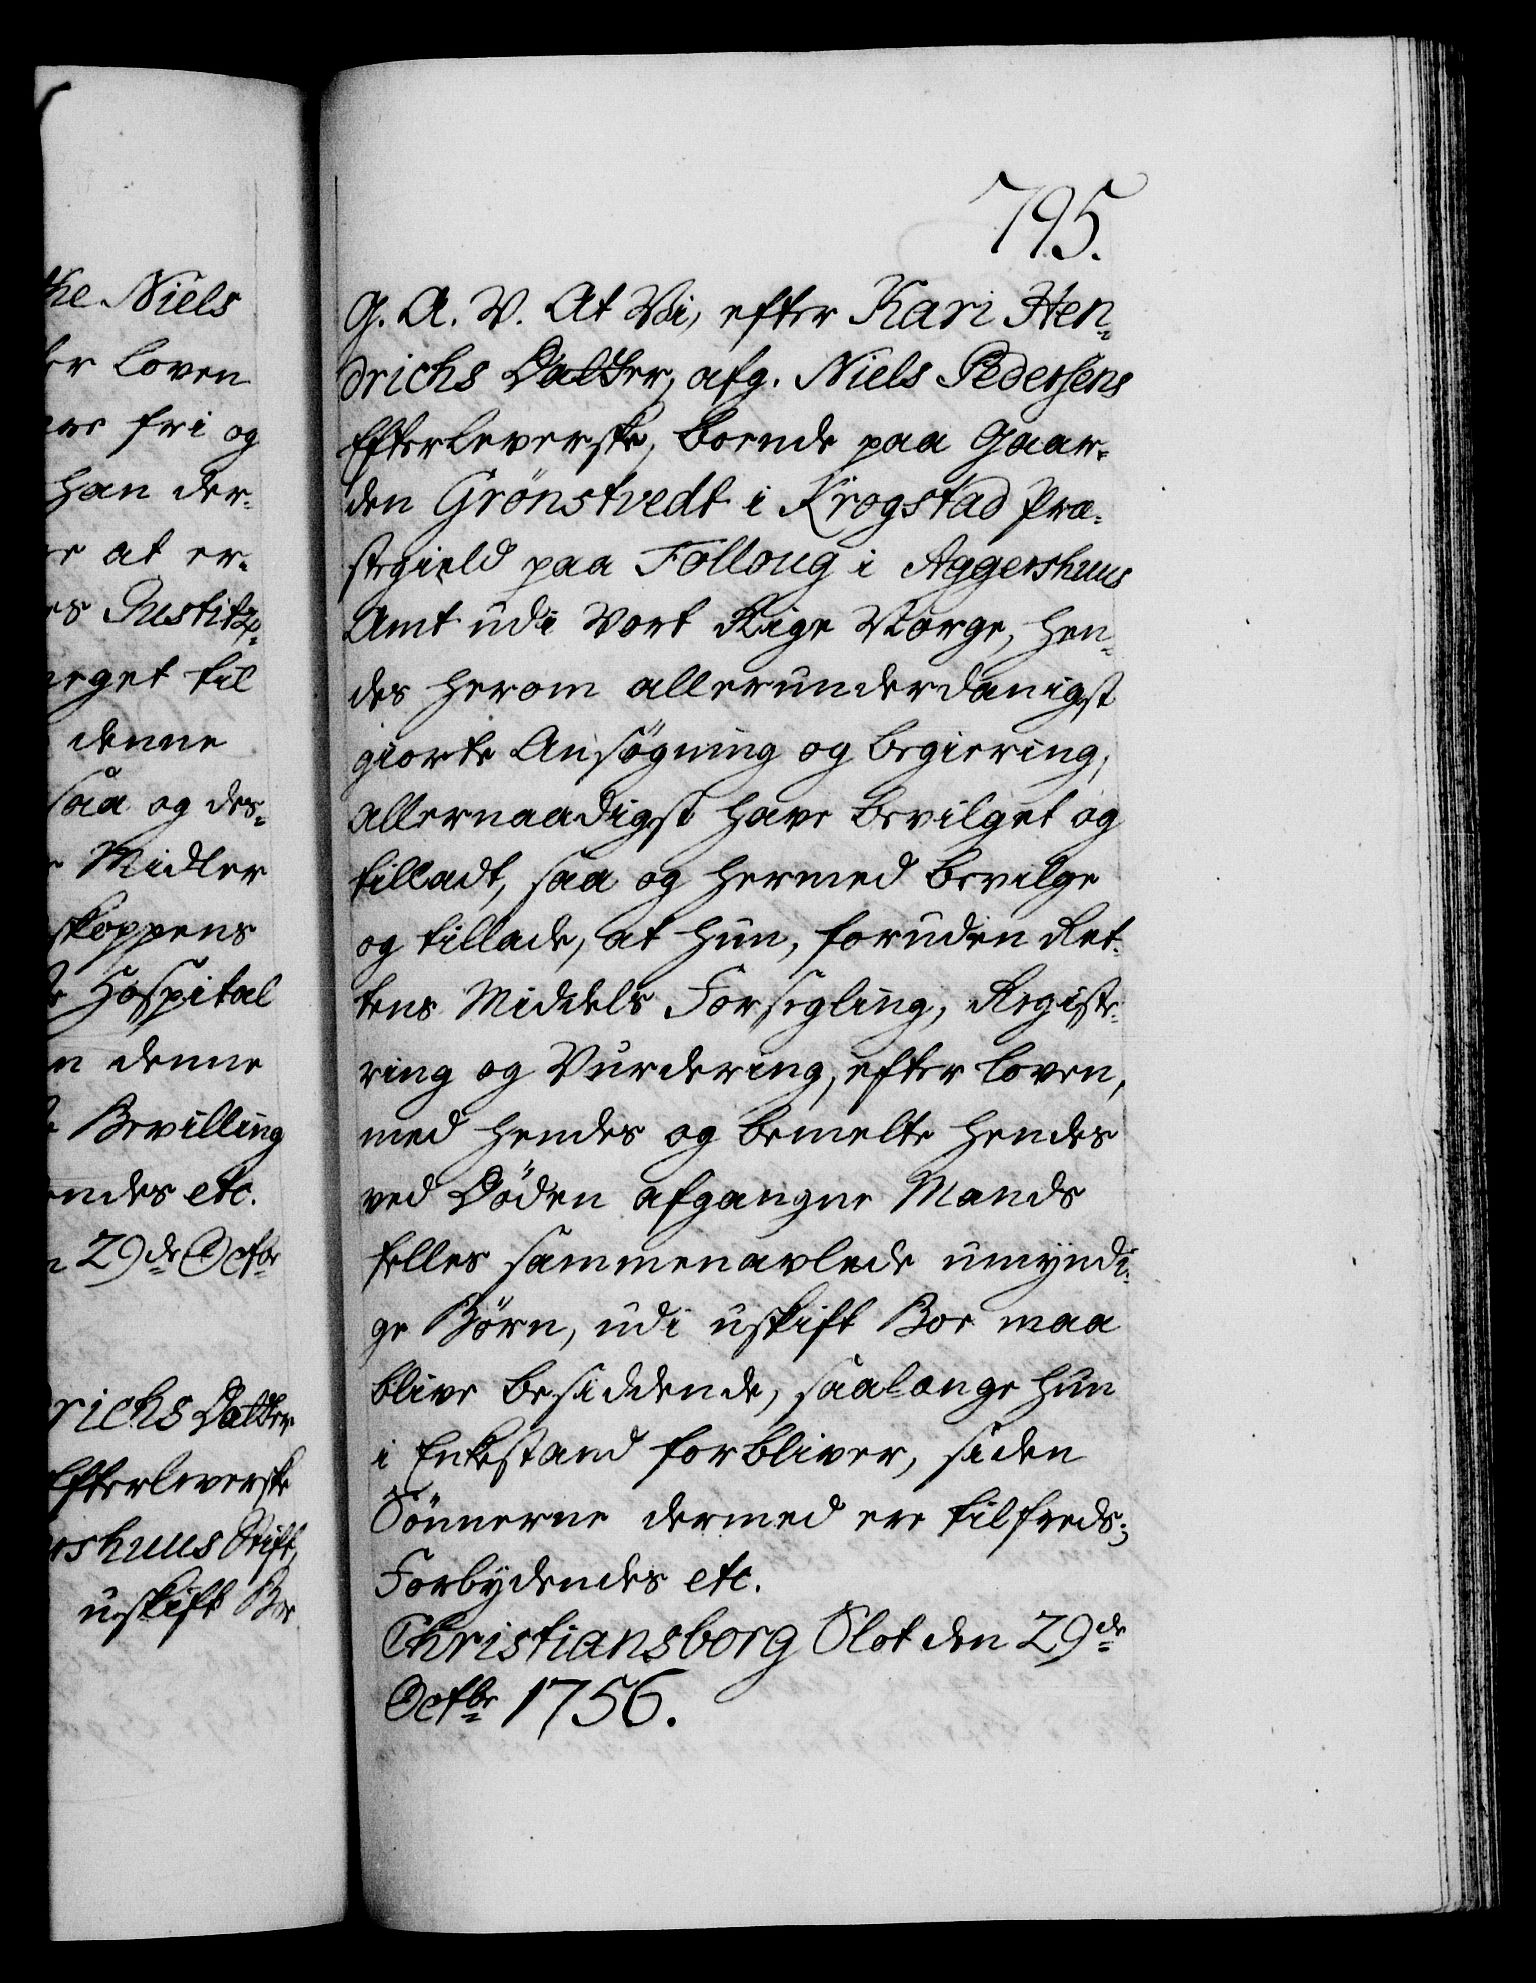 ke Niels
er loven
ere fri og
han der-
re at er-
es Justitz-
erget til
denne
saa og des-
Midler
skoppens
Hospital
n denne
Bevilling
endes etc.
29de Octbr
richs Datter
Efterleverske
rshuus Stift,
uskift Boe
795.
G. A. V. At Vi, efter Kari Hen-
drichs Datter, afg. Niels Pedersens
Efterleverske, boende paa Gaar-
den Grönstvedt i Krogstad Præ-
stegield paa Folloug i Aggershuus
Amt udi Vort Rige Norge, hen-
des herom allerunderdanigst
giorte Ansögning og begiering,
allernaadigst have bevilget og
tilladt, saa og hermed bevilge
og tillade, at hun, foruden Ret-
tens Middels Forsegling, Registe-
ring og Vurdering, efter loven,
med hendes og bemelte hendes
ved Döden afgangne Mands
felles sammenavlede umyndi-
ge Börn, udi uskift Boe maa
blive besiddende, saalænge hun
i Enkestand forbliver, siden
Sönnerne dermed ere tilfreds;
Forbydendes etc.
Christiansborg Slot den 29de
Octbr 1756.